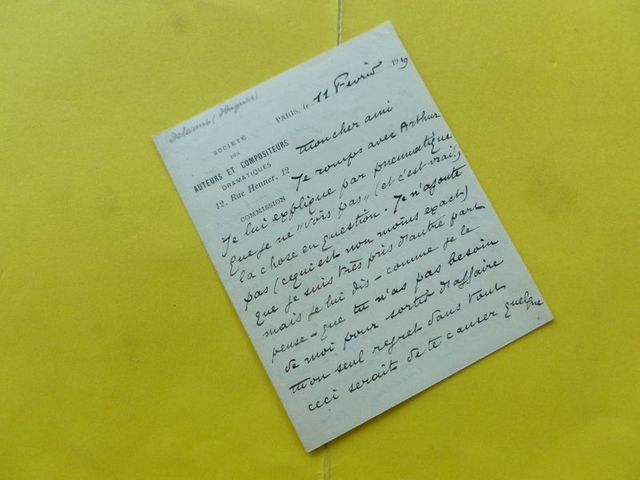 Delorme (Hugues)
SOCIÉTÉ
DES
AUTEURS ET COMPOSITEURS
DRAMATIQUES
12, Rue Henner, 12
COMMISSION
PARIS, le 11 Février 19
Mon cher ami
Je romps avec Arthur
Je lui explique par pneumatique
que je ne "vois pas" (et c'est vrai!)
la chose en question. Je n'ajoute
pas (ce qui est non moins exact)
que je suis très pris d'autre part
mais je lui dis - comme je le
pense - que tu n'as pas besoin
de moi pour sortir d'affaire
Mon seul regret dans tout
ceci serait de te causer quelque